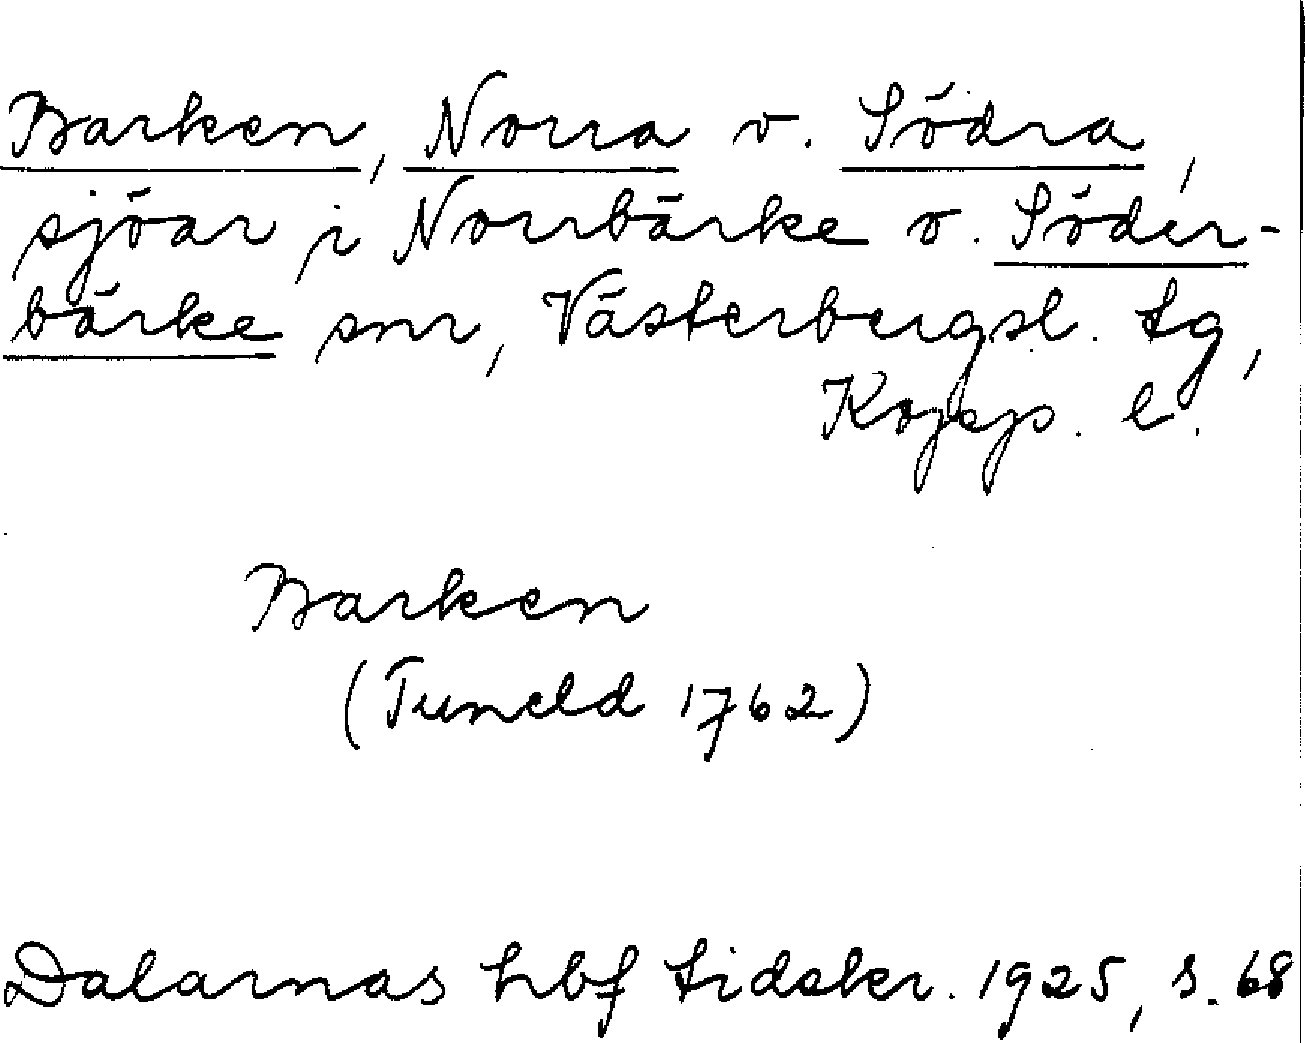 Barken, Norra o. Södra,
sjöar i Norrbärke o. Söder-
bärke snr, Västerbergsl. tg,
Kopp. l.
Barken
(Tuneld 1762)
Dalarnas hbf tidskr. 1925, s. 68